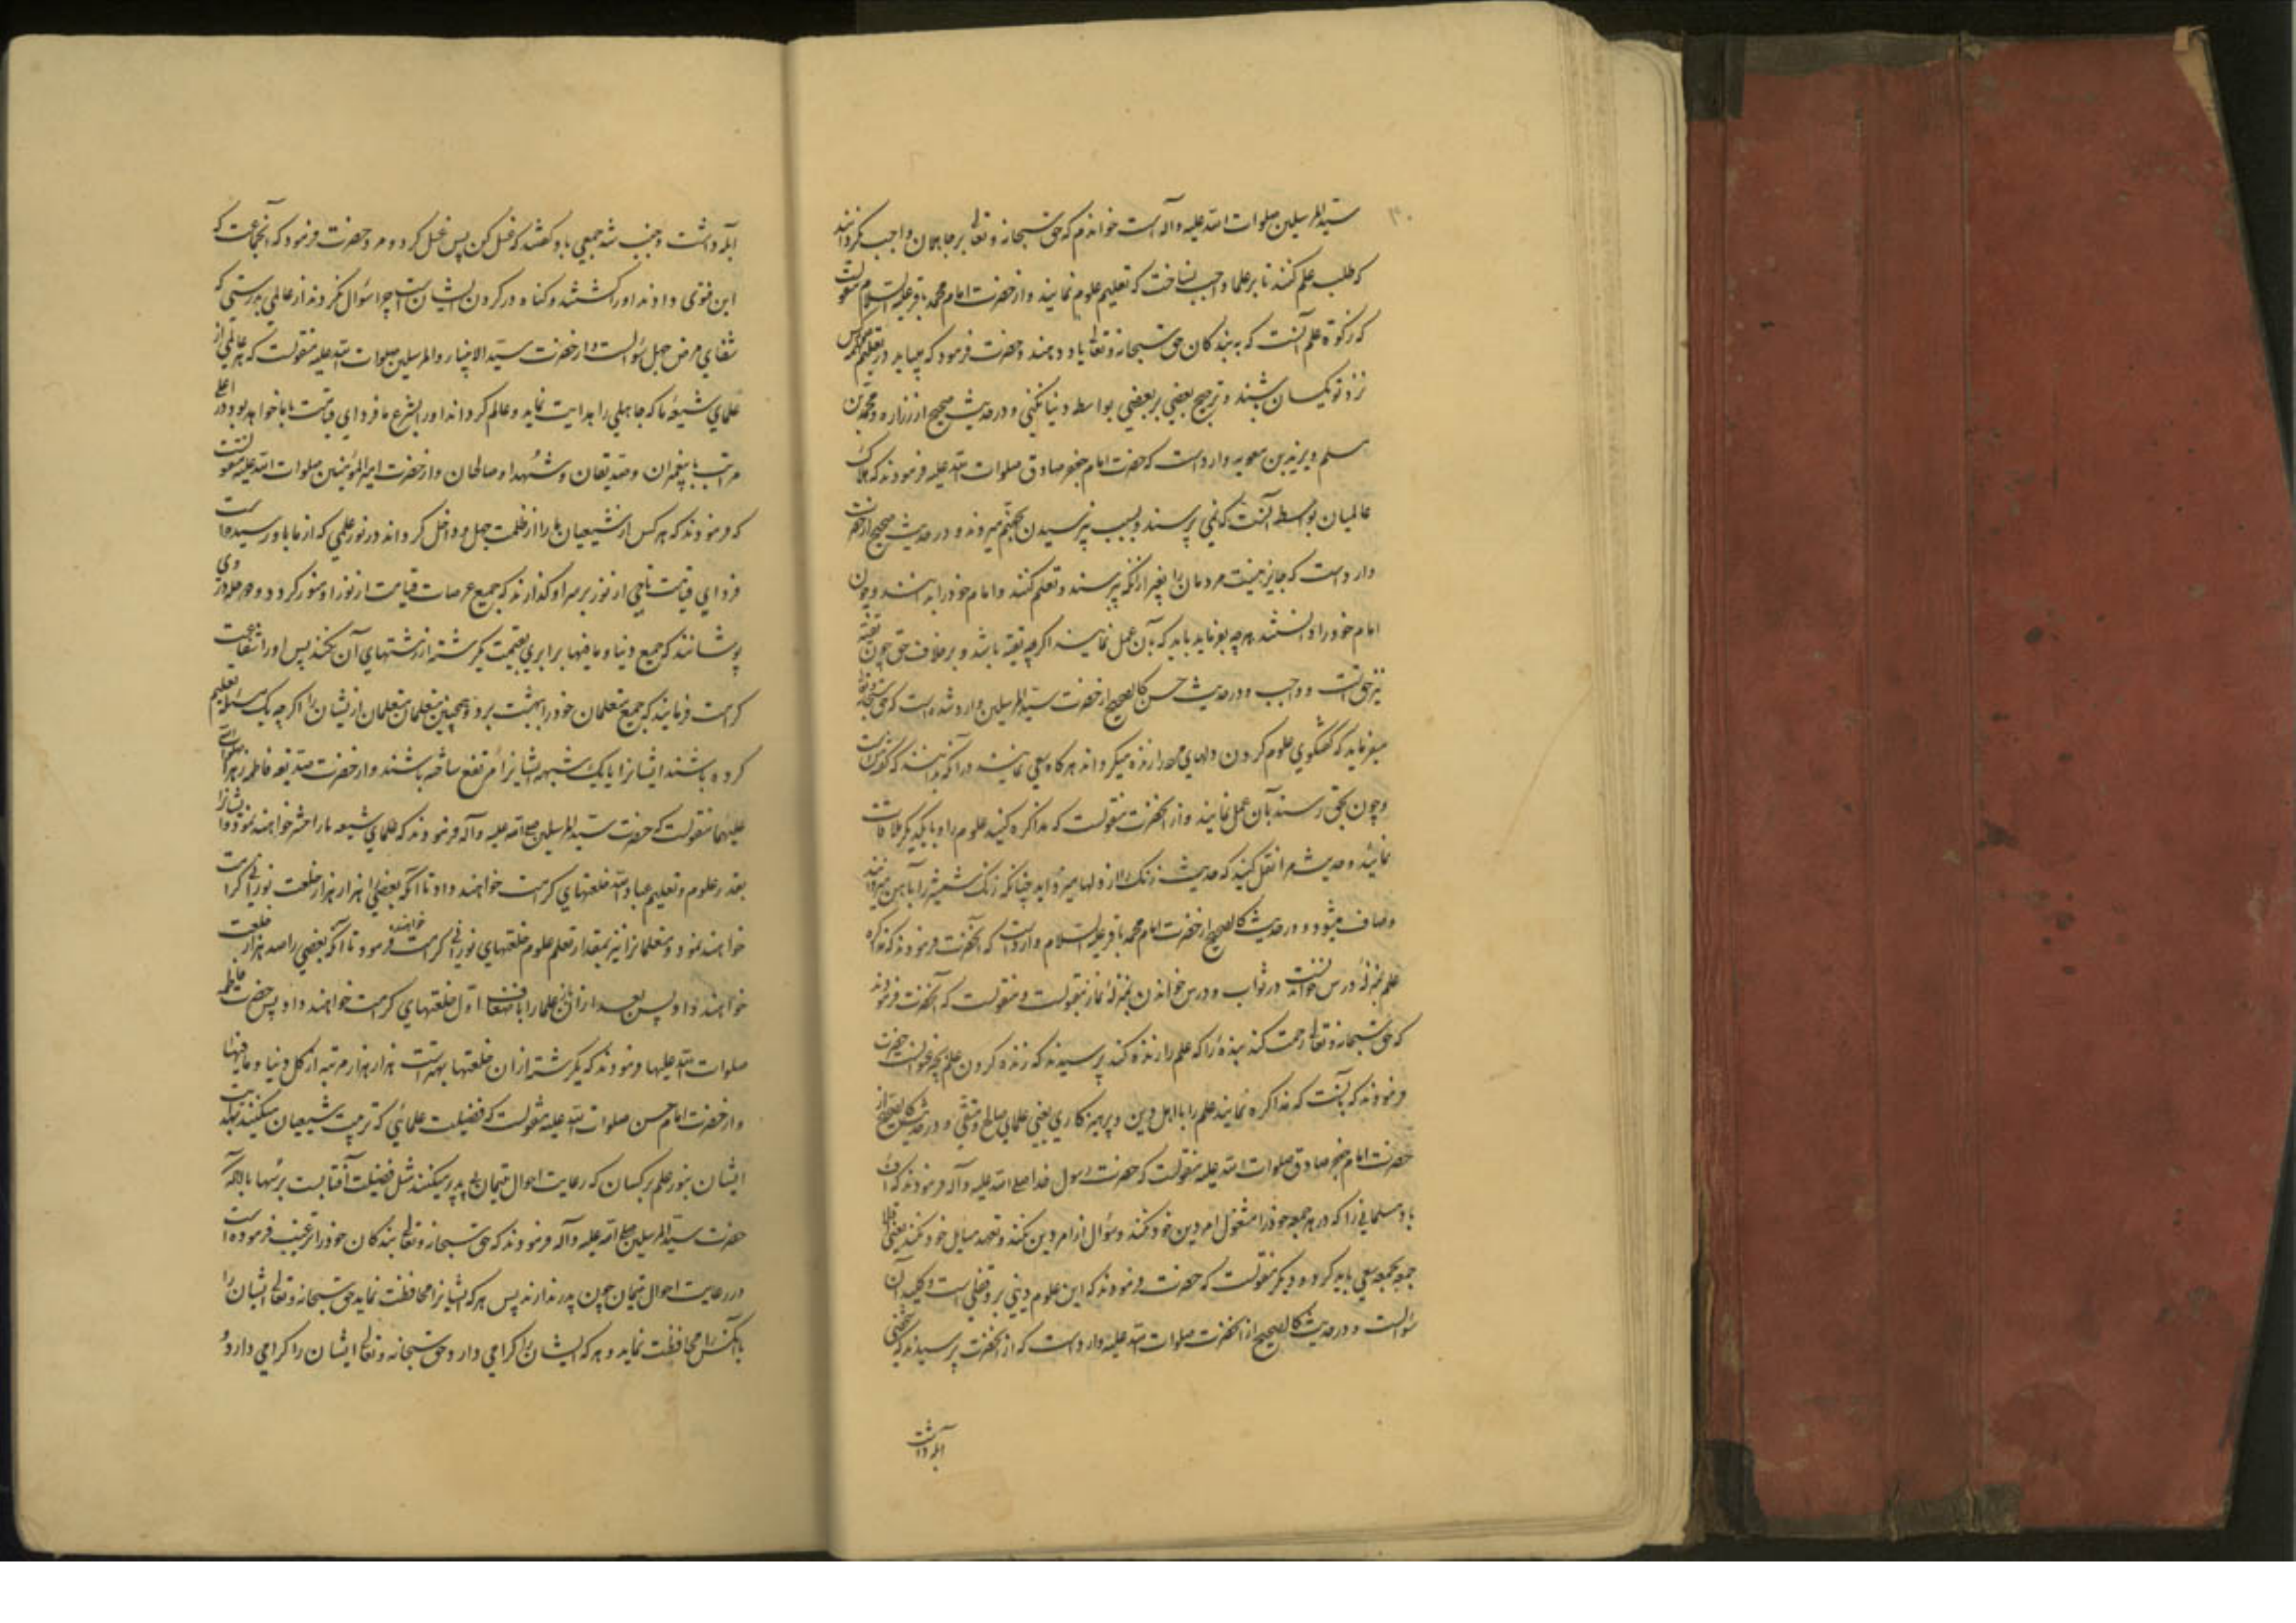 سید المرسلین صلوات الله علیه و آله است خواندم که حق سبحانه و تعالی بر جاهلان واجب نگردانید
که طلب علم کنند تا بر علما واجب نساخت که تعلیم علوم نمایند و از حضرت امام محمد باقر علیه السلام منقولست
که زکوة علم آنست که به بندکان حق سبحانه و تعالی یاد دهند و حضرت فرمود که میباید در تعلیم همه کس
نزد تو یکسان باشند و ترجیح بعضی بر بعضی بواسطه دنیا نکنی و در حدیث صحیح از زراره و محمد بن
مسلم و برید بن معویه وارد است که حضرت امام جعفر صادق صلوات الله علیه فرمودند که هلاک
عالمیان بواسطه آنست که نمی پرسند و بسبب نپرسیدن بجهنم میروند و در حدیث صحیح از حضرت
وارد است که جایز نیست مردمان را بغیر ازانکه بپرسند و تعلم کنند و امام خود را بدانند و چون
امام خود را دانستند هرچه بفرماید باید که بآن عمل نمایند اکرچه تقیه باشد و بر خلاف حق چون تقیه
نیز حق است و واجب و در حدیث حسن کالصحیح از حضرت سید المرسلین وارد شده است که حق سبحانه و تعالی
میفرماید که گفتگوی علوم کردن دلهای مرده را زنده میکرداند هرکاه سعی نمایند در آنکه بدانند که
و چون بحق رسند بآن عمل نمایند و از آنحضرت منقولست که مذاکره کنید علوم را و با یکدیکر ملاقات
نمائید و حدیث مرا نقل کنید که حدیث زنک را از دلها میزداید چنانکه زنک شمشیر را بآهن میزدایند
و صاف میشود و در حدیث کالصحیح از حضرت امام محمد باقر علیه السلام وارداست که آنحضرت فرمودند که مذاکره
علم بمنزله درس خواندنست در ثواب و درس خواندن بمنزله نماز مقبولست و منقولست که آنحضرت فرمودند
که حق سبحانه و تعالی رحمت کند بنده را که علم را زنده کند پرسیدند که زنده کردن علم بچه عنوانست حضرت
فرمودند که بآنست که مذاکره نمایند علم را با اهل دین و پرهیزکاری یعنی علمای صالح متقی و در حدیث کالصحیح از
حضرت امام جعفر صادق صلوات الله علیه منقولست که حضرت رسول خدا صلی الله علیه و آله فرمودند که اف
باد مسلمانی را که در هر جمعه خود را مشغول امر دین خود نکند و سؤال از امر دین نکند و تعهد مسایل خود نکند یعنی
جمعه بجمعه سعی باید کرد و دیکر منقولست که حضرت فرمودند که این علوم دینی بر او قفلی است و کلید آن
سؤالست و در حدیث کالصحیح از آنحضرت صلوات الله علیه وارد است که از آنحضرت پرسیدند که شخصی
آبله داشت
آبله داشت و جنب شد جمعی باو کفتند که غسل کن پس غسل کرد و مرد حضرت فرمود که آنجماعت که
این فتوی دادند او را کشتند و کناه در کردن ایشان است چرا سؤال نکردند از عالمی بدرستی که
شفای مرض جهل سؤالست و از حضرت سید الانبیاء و المرسلین صلوات الله علیه منقولست که هر عالمی از
علمای شیعه ما که جاهلی را هدایت نماید و عالم کرداند او را بشرع ما فردای قیامت با ما خواهد بود در اعلی
مراتب با پیغمبران و صدیقان و شهدا و صالحان و از حضرت امیر المؤمنین صلوات الله علیه منقولست
که فرمودند که هر کس از شیعیان ما را از ظلمت جهل و داخل کرداند در نور علمی که از ما باو رسیده است
فردای قیامت تاجی از نور بر سر او کذارند که جمیع عرصات قیامت از نور او منور کردد و حله در وی
پوشانند که جمیع دنیا و مافیها برابری بقیمت یکرشته از رشتهای آن نکند پس او را شفاعت
کرامت فرمایند که جمیع متعلمان خود را ببهشت برد و همچنین متعلمان متعلمان ازیشان را اکرچه یک مسئله تعلیم
کرده باشند ایشانرا یا یک شبهه ایشانرا مرتفع ساخته باشند و از حضرت صدیقه فاطمه زهرا صلوات الله
علیهما منقولست که حضرت سید المرسلین صلی الله علیه و آله فرمودند که علمای شیعه ما را حشر خواهند نمود و ایشانرا
بقدر علوم و تعلیم عباد الله خلعتهای کرامت خواهند داد تا آنکه بعضی را هزار هزار خلعت نورانی کرامت
خواهند نمود و متعلمانرا نیز بمقدار تعلم علوم خلعتهای نورانی کرامت خواهند فرمود تا آنکه بعضی را صد هزار خلعت
خواهند داد پس بعد از آن علما را باضعاف اول خلعتهای کرامت خواهند داد پس حضرت فاطمه
صلوات الله علیها فرمودند که یکرشته از آن خلعتها بهتر است هزار هزار مرتبه از کل دنیا و مافیها
و از حضرت امام حسن صلوات الله علیه منقولست که فضیلت علمائی که تربیت شیعیان میکنند
ایشان بنور علم بر کسان که رعایت احوال یتیمان بی پدر میکنند مثل فضیلت آفتابست بر سها بلکه آنکه
حضرت سید المرسلین صلی الله علیه و آله فرمودند که حق سبحانه و تعالی بندکان خود را ترغیب فرموده است
در رعایت احوال یتیمان چون پدر ندارند پس هر که ایشانرا محافظت نماید حق سبحانه و تعالی ایشان را
با آنکس را محافظت نماید و هر که ایشان را کرامی دارد حق سبحانه و تعالی ایشان را کرامی دارد و